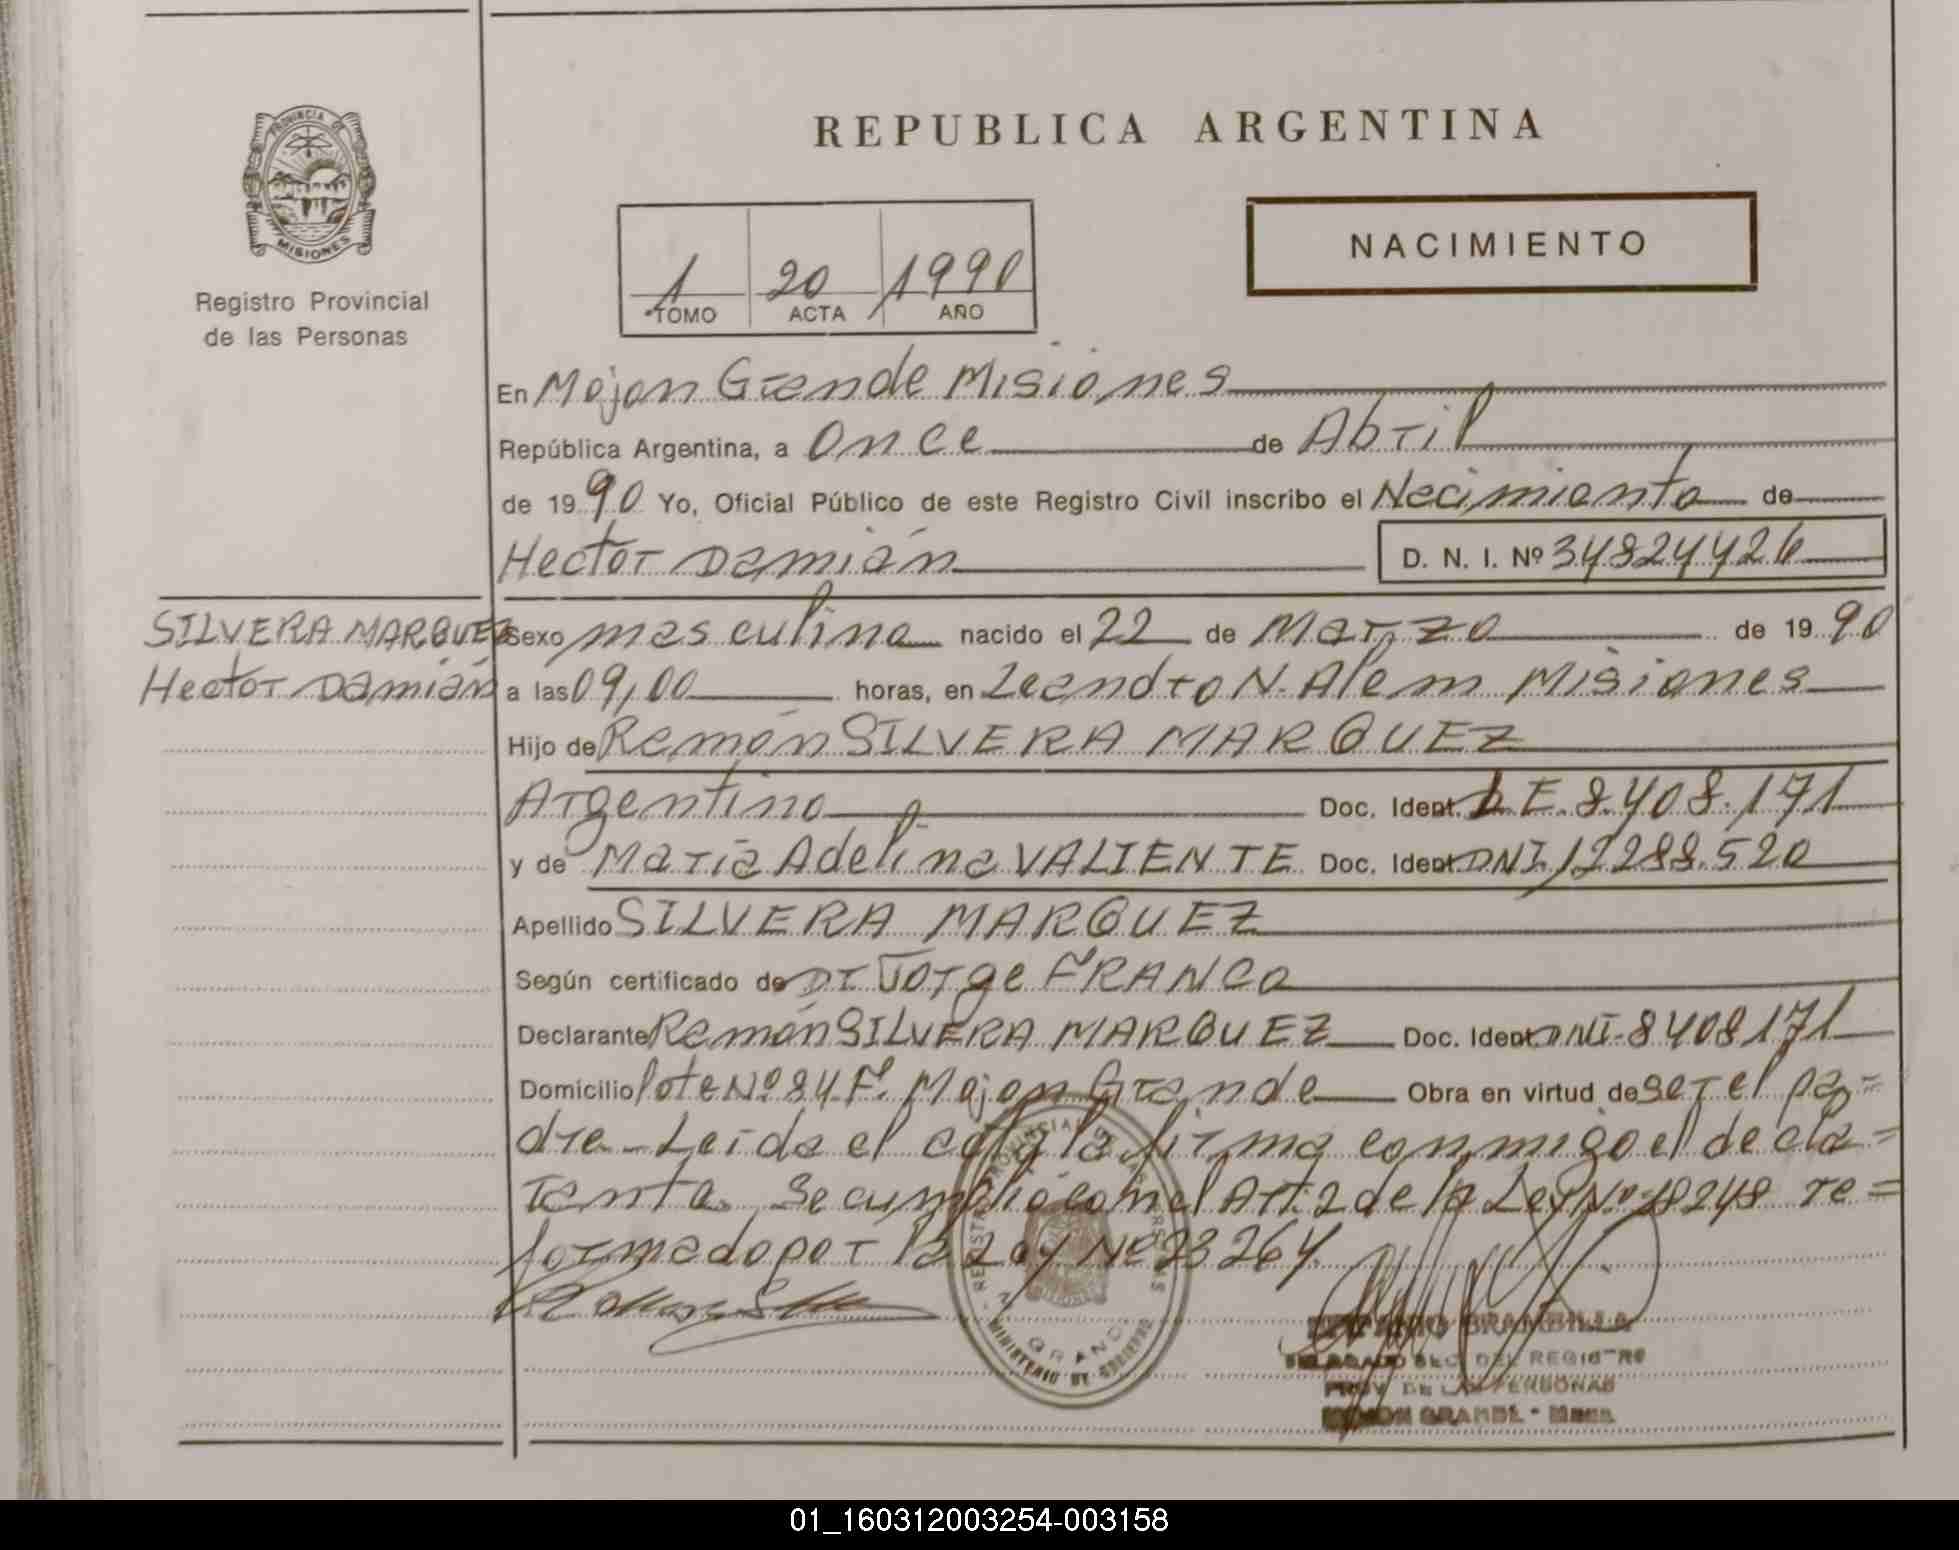 PROVINCIA DE
MISIONES
Registro Provincial
de las Personas
REPUBLICA ARGENTINA
1 20 1990
TOMO ACTA AÑO
NACIMIENTO
En Mojon Grande Misiones
República Argentina, a Once de Abril
de 1990 Yo, Oficial Público de este Registro Civil inscribo el Nacimiento de
Hector Damián D. N. I. Nº 34824426
SILVERA MARQUEZ
Hector Damián
Sexo masculino nacido el 22 de Marzo de 1990
a las 09,00 horas, en Leandro N. Alem Misiones
Hijo de Ramón SILVERA MARQUEZ
Argentino Doc. Ident. LE. 8.408.171
y de María Adelina VALIENTE Doc. Ident. DNI 12288.520
Apellido SILVERA MARQUEZ
Según certificado de Dr Jorge FRANCO
Declarante Ramón SILVERA MARQUEZ Doc. Ident. DNI-8408171
Domicilio lote Nº 84 F. Mojon Grande Obra en virtud de ser el pa=
dre - Leida el acta la firma conmigo el decla=
rante. Se cumplió con el Art. 2 de la Ley Nº 18248 re=
formado por la Ley Nº 23264.
REGISTRO PROVINCIAL DE LAS PERSONAS
MISIONES
GRANDE
MINISTERIO DE GOBIERNO
BRAMBILLA
DELEGADO SEC. DEL REGISTRO
PROV. DE LAS PERSONAS
MOJON GRANDE - Mnes.
01_160312003254-003158